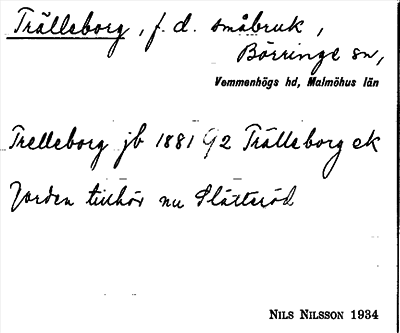 Trällsborg, f. d. småbruk,
Börringe sn,
Vemmenhögs hd, Malmöhus län
Trelleborg jb 1881 G2 Trällsborg ek
Jorden tillhör nu Slätteröd
NILS NILSSON 1934